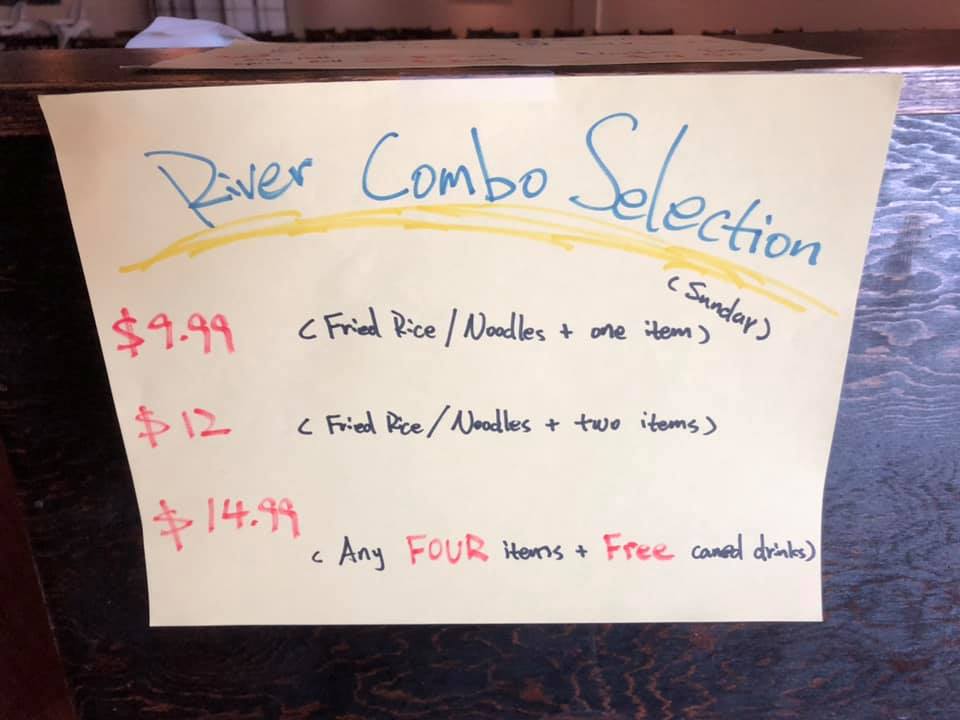 River Combo Selection
(Sunday)
$9.99 (Fried Rice/Noodles + one item)
$12 (Fried Rice/Noodles + two items)
$14.99
(Any FOUR items + Free caned drinks)